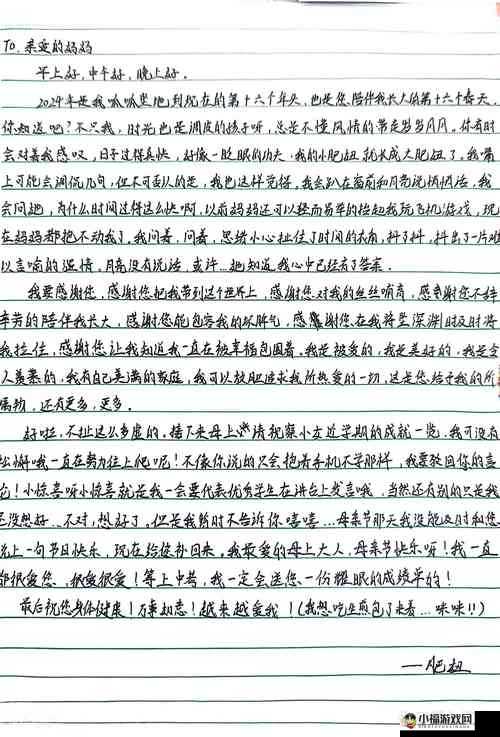 TO. 亲爱的妈妈
早上好,中午好,晚上好。
2024年是我呱呱坠地到现在的第十六个年头,也是您陪伴我长大的第十六个春天。
你知道吧?不只我,时光也是调皮的孩子呀,总是不懂风情的带走岁岁月月。你有时
会对着我感叹,日子过得真快,好像一眨眼的功夫,我的小肥妞就长成大肥妞了。我嘴
上可能会调侃几句,但不可否认的是,我也这样觉得,我会趴在窗前和月亮说悄悄话,我
会问她,为什么时间过得这么快啊,以前妈妈还可以轻而易举的抱起我玩飞机游戏,现
在妈妈都抱不动我了。我问着,问着,思绪小心扯住了时间的衣角,抖了抖,抖出了一片难
以言喻的温情。月亮没有说话,或许…她知道我心中已经有了答案。
我要感谢您,感谢您把我带到这个世界上,感谢您对我的丝丝哺育,感谢您不辞
辛劳的陪伴我长大,感谢您能包容我的坏脾气,感谢您在我将坠深渊时及时将
我拉住,感谢您让我知道我一直在被幸福包围着。我是被爱的,我是美好的,我是令
人羡慕的,我有自己美满的家庭,我可以放胆追求我所热爱的一切,这是您给予我的所
属物,还有更多,更多。
好啦,不扯这么多虚的。接下来母上请视察小女近学期的成就一览。我可没有
松懈哦我一直在努力往上爬呢!不像你说的只会抱着手机不学那样,我要驳回你的言
论!小惊喜呀小惊喜就是我一会要代表优秀学生在讲台上发言哦,当然还有别的只是我
还没想好…不对,想好了。但是我暂时不告诉你嘻嘻…母亲节那天我没能及时和您
说上一句节日快乐,现在给您补回来。我最爱的母上大人,母亲节快乐呀!我一直
都很爱您,很爱很爱!等上中考,我一定会送您一份耀眼的成绩单的!
最后祝您身体健康!万事如意!越来越爱我!(我想吃生煎包了来着…咪咪!!)
——肥妞
小福游戏网